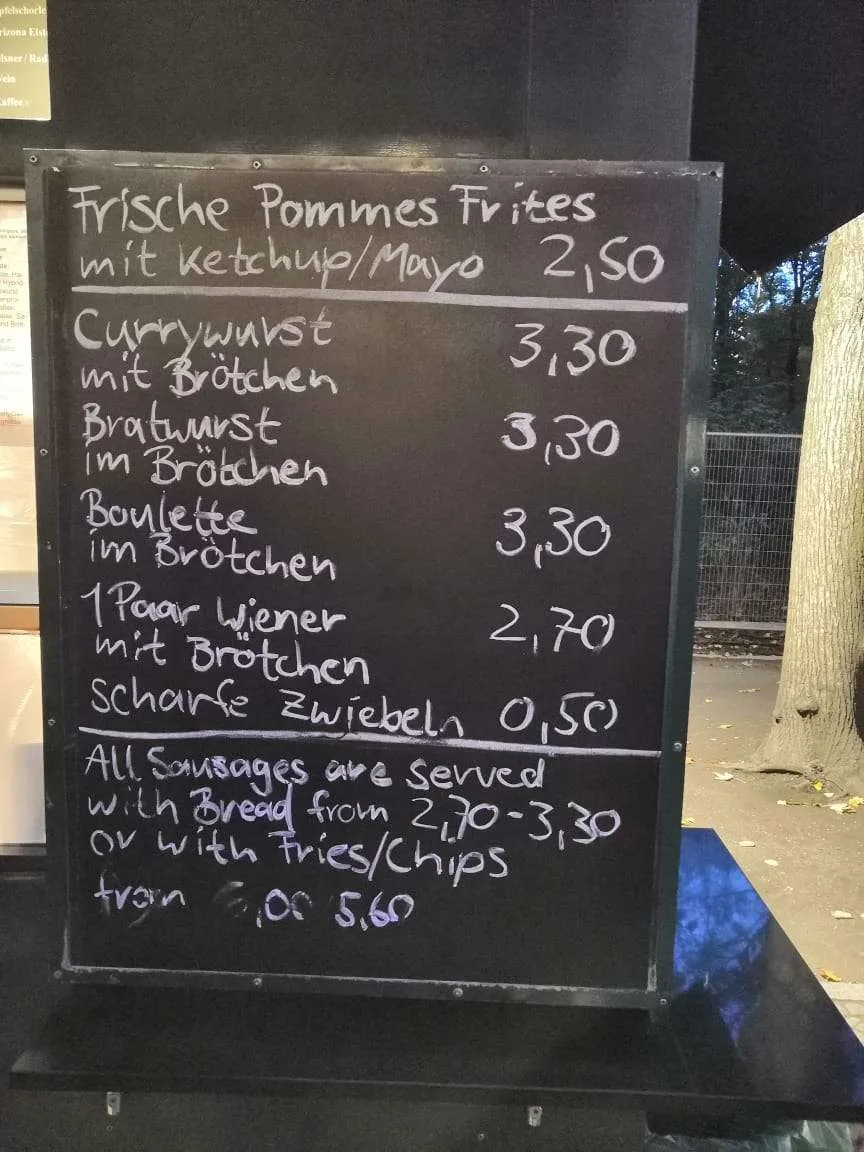 pfelschorle
rizona Eist
ilsner / Rad
Vein
Kaffee
Frische Pommes Frites
mit Ketchup/Mayo 2,50
Currywurst
mit Brötchen 3,30
Bratwurst
im Brötchen 3,30
Boulette
im Brötchen 3,30
1 Paar Wiener
mit Brötchen 2,70
scharfe Zwiebeln 0,50
All Sausages are served
with Bread from 2,70-3,30
or with Fries/Chips
from 5,60